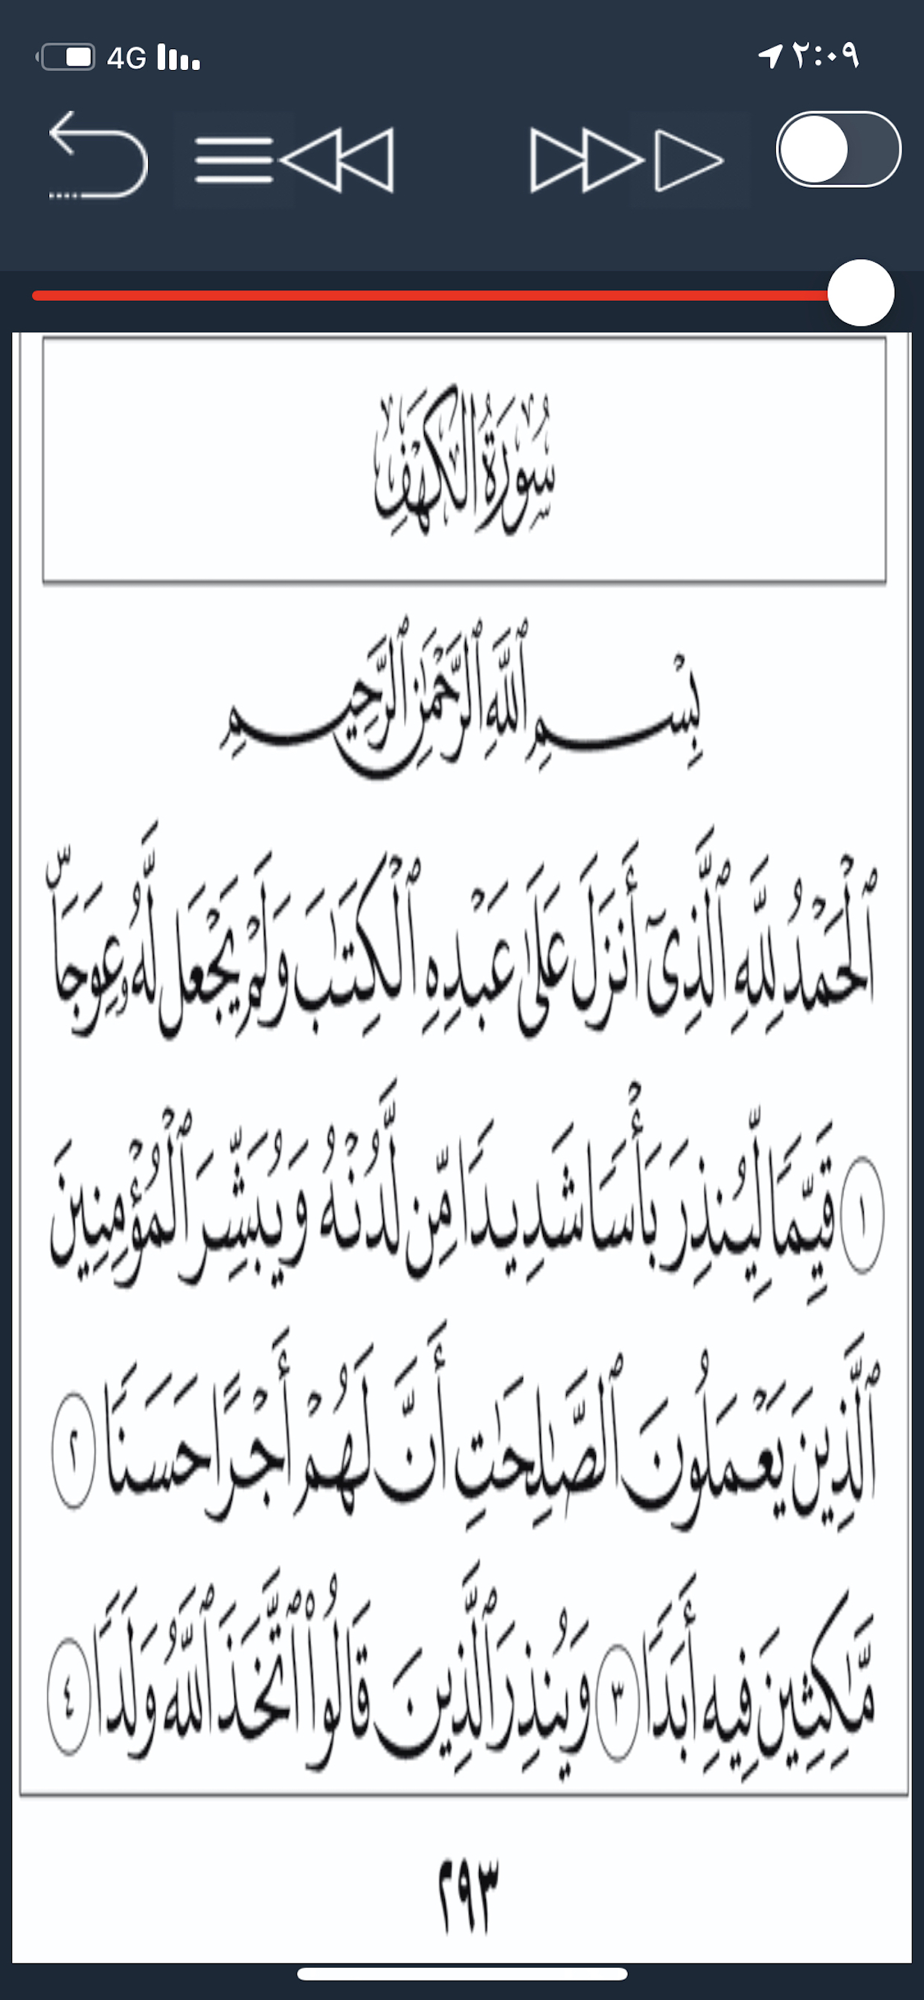 4G ٢:٠٩
سُورَةُ الْكَهْفِ
بِسْمِ ٱللَّهِ ٱلرَّحْمَٰنِ ٱلرَّحِيمِ
ٱلْحَمْدُ لِلَّهِ ٱلَّذِىٓ أَنزَلَ عَلَىٰ عَبْدِهِ ٱلْكِتَٰبَ وَلَمْ يَجْعَل لَّهُۥ عِوَجَاۜ
١ قَيِّمًا لِّيُنذِرَ بَأْسًا شَدِيدًا مِّن لَّدُنْهُ وَيُبَشِّرَ ٱلْمُؤْمِنِينَ
ٱلَّذِينَ يَعْمَلُونَ ٱلصَّٰلِحَٰتِ أَنَّ لَهُمْ أَجْرًا حَسَنًا ٢
مَّٰكِثِينَ فِيهِ أَبَدًا ٣ وَيُنذِرَ ٱلَّذِينَ قَالُوا۟ ٱتَّخَذَ ٱللَّهُ وَلَدًا ٤
٢٩٣